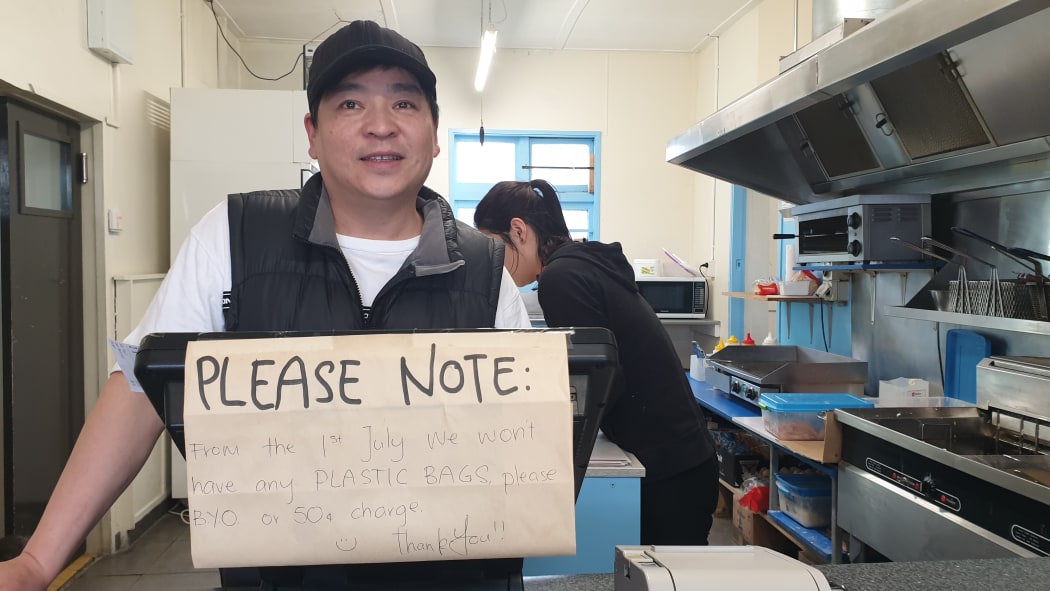 PLEASE NOTE:
From the 1st July we wont
have any PLASTIC BAGS, please
BYO or 50¢ charge.
thankyou!!